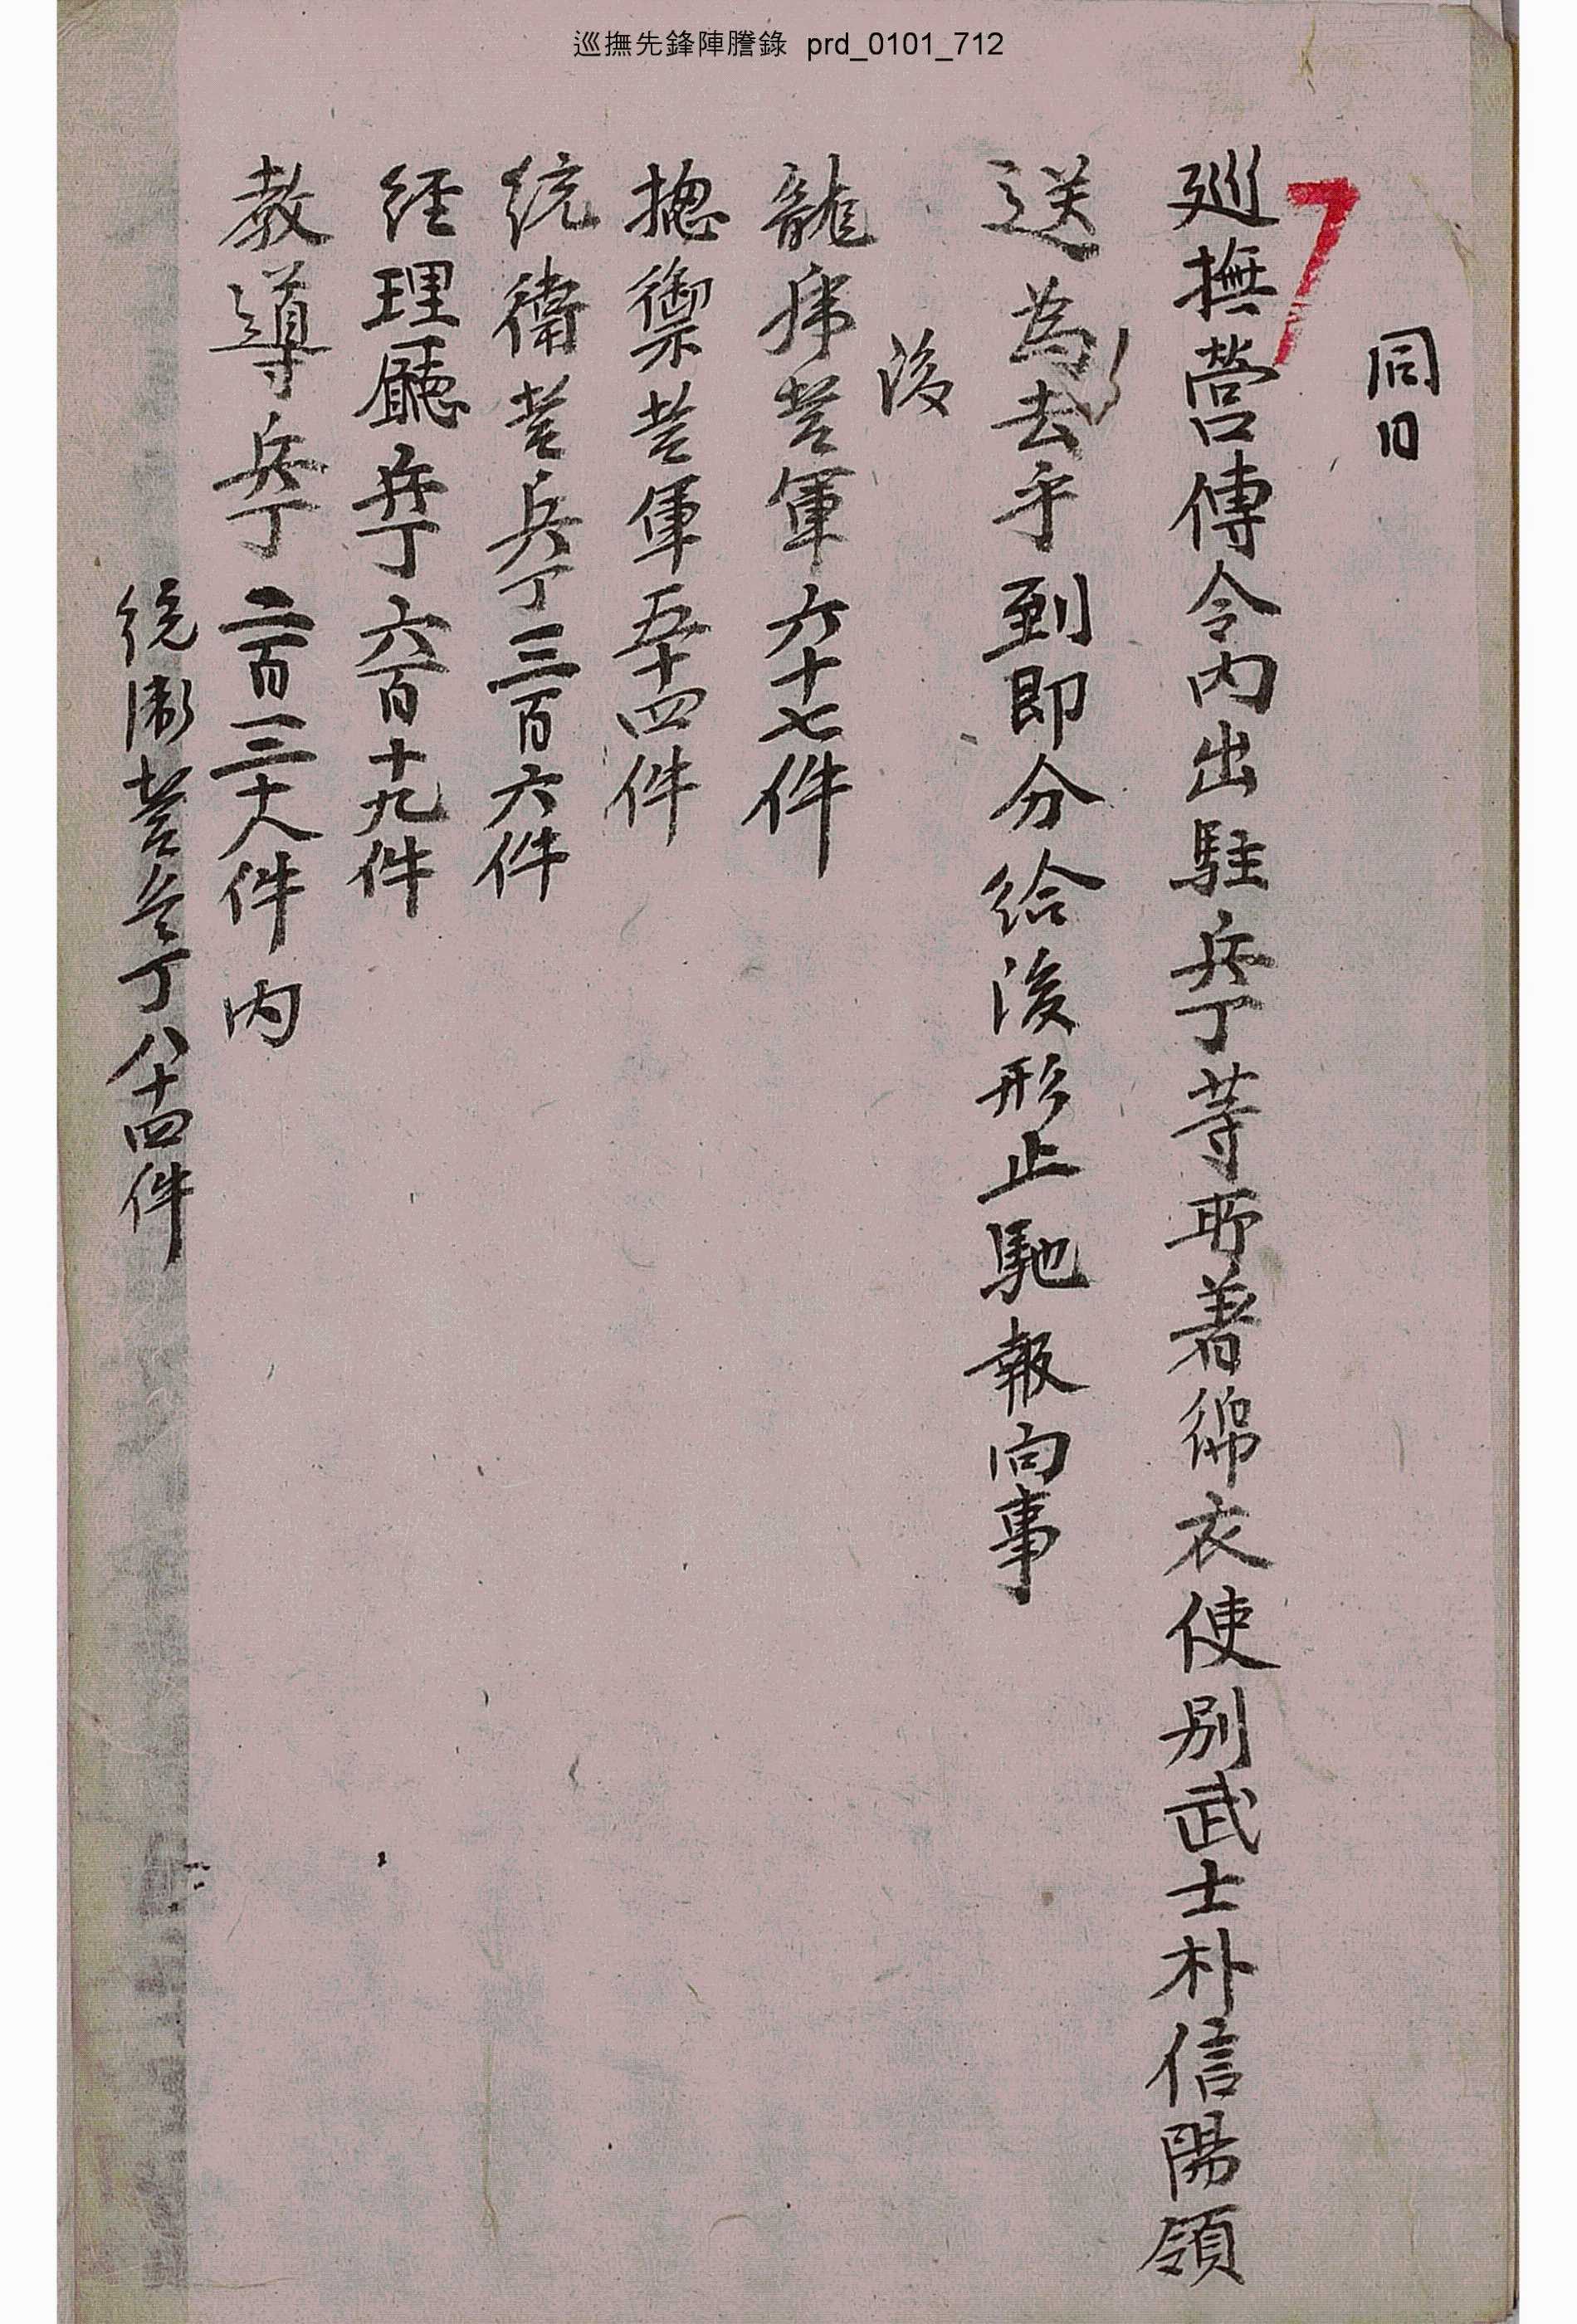 巡撫先鋒陣謄錄 prd_0101_712
同日
巡撫營傳令內出駐兵丁等所著綿衣使別武士朴信陽領
送爲去乎到卽分給後形止馳報向事
後
龍虎營軍六十七件
摠禦營軍五十四件
統衛營兵丁三百六件
經理廳兵丁六百十九件
敎導兵丁二百三十八件內
統衛營兵丁八十四件